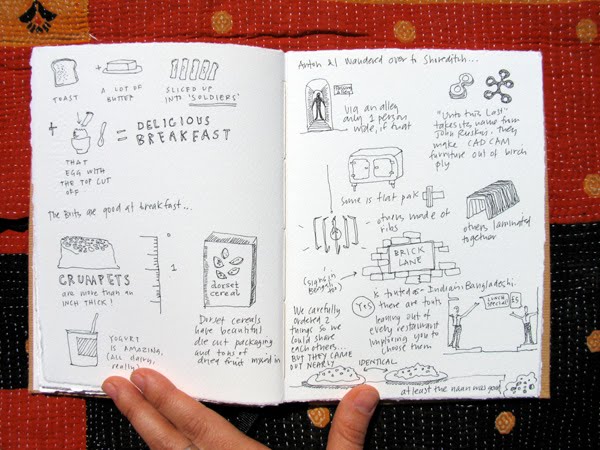 TOAST
+
A LOT OF
BUTTER
SLICED UP
INTO 'SOLDIERS'
+
= DELICIOUS
BREAKFAST
THAT
EGG WITH
THE TOP CUT
OFF..
The Brits are good at breakfast...
CRUMPETS
are more than an
INCH THICK!
0
1
dorset
cereal
Dorset cereals
have beautiful
die cut packaging
and tons of
dried fruit mixed in
YOGURT
IS AMAZING.
(ALL dairy,
really)
Anton & I wandered over to Shoreditch...
VIA an alley
only 1 person
wide, if that
"Unto this Last"
takes its name from
John Ruskin. They
make CAD CAM
furniture out of birch
ply
Some is flat pak
others made of
ribs
others laminated
together
BRICK
LANE
(signs in
Bengali)
Yes there are touts
leaning out of
every restaurant
imploring you to
choose them
LUNCH
SPECIAL
£5
We carefully
ordered 2
things so we
could share
each others...
BUT THEY CAME
OUT NEARLY
IDENTICAL
at least the naan was good